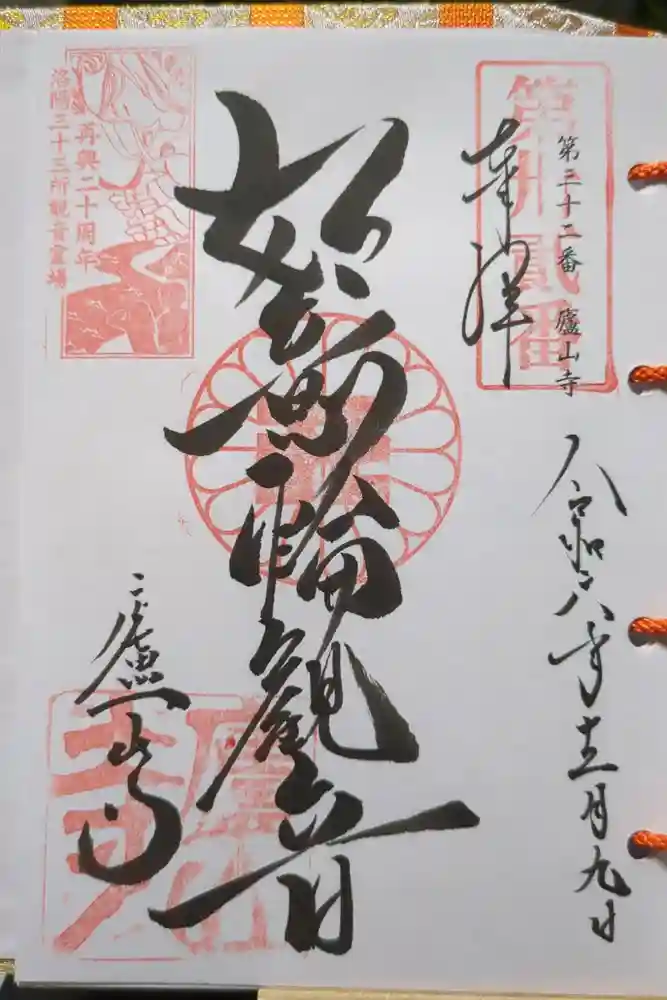 第卅貳番
第三十二番　廬山寺
奉拝
令和六年十二月九日
如意輪観音
廬山寺
再興二十周年
洛陽三十三所観音霊場